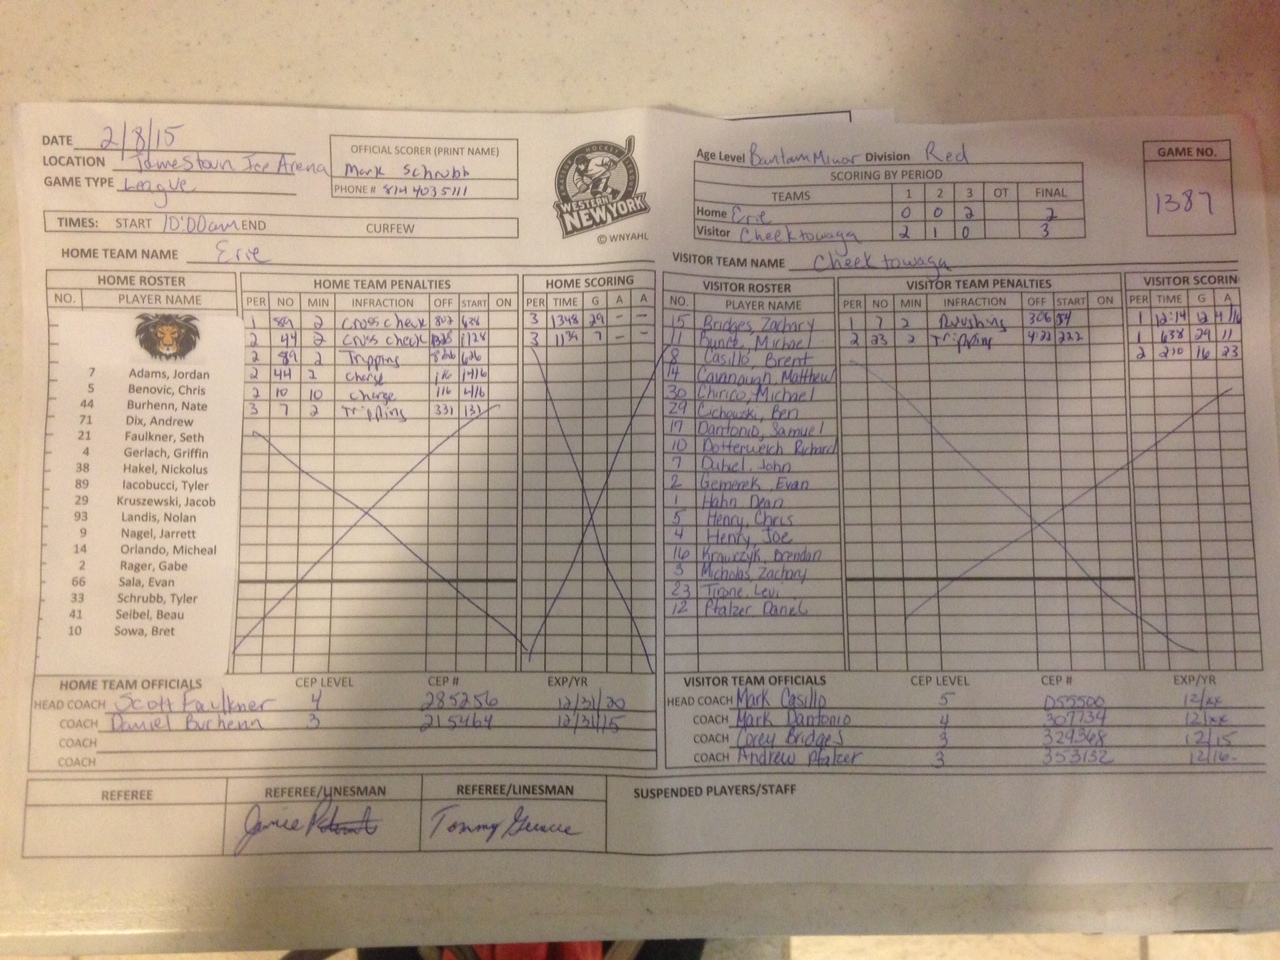 DATE 2/8/15
LOCATION Jamestown Ice Arena
GAME TYPE League
OFFICIAL SCORER (PRINT NAME)
Mark Schrubb
PHONE # 814 403 5111
TIMES: START 10:00am END CURFEW
HOME TEAM NAME Erie
WESTERN
NEW YORK
© WNYAHL
Age Level Bantam Minor Division Red
SCORING BY PERIOD
TEAMS 1 2 3 OT FINAL
Home Erie 0 0 2 2
Visitor Cheektowaga 2 1 0 3
GAME NO.
1387
VISITOR TEAM NAME Cheektowaga
HOME ROSTER
NO. PLAYER NAME
7 Adams, Jordan
5 Benovic, Chris
44 Burhenn, Nate
71 Dix, Andrew
21 Faulkner, Seth
4 Gerlach, Griffin
38 Hakel, Nickolus
89 Iacobucci, Tyler
29 Kruszewski, Jacob
93 Landis, Nolan
9 Nagel, Jarrett
14 Orlando, Micheal
2 Rager, Gabe
66 Sala, Evan
33 Schrubb, Tyler
41 Seibel, Beau
10 Sowa, Bret
HOME TEAM PENALTIES
PER NO MIN INFRACTION OFF START ON
1 89 2 Cross check
2 44 2 Cross check 1128
2 89 2 Tripping 626
2 44 2 1416
2 10 10 Charge 116 416
3 7 2 Tripping 331 131
HOME SCORING
PER TIME G A A
3 1348 29 - -
3 1139 7 - -
VISITOR ROSTER
NO. PLAYER NAME
15 Bridges, Zachary
11 Bunce, Michael
8 Casillo, Brent
14 Cavanaugh, Matthew
30 Chirico, Michael
29 Cichowski, Ben
17 Dantonio, Samuel
10 Dotterweich Richard
7 Duhel, John
2 Gemerek, Evan
1 Hahn Dean
5 Henry, Chris
4 Henry, Joe
16 Krawczyk, Brendan
3 Micholas, Zachary
23 Tirone, Levi
12 Pfalzer Daniel
VISITOR TEAM PENALTIES
PER NO MIN INFRACTION OFF START ON
1 7 2 306
2 23 2 Tripping 4:22 222
VISITOR SCORIN
PER TIME G A
1 12:14 12
1 638 29 11
2 210 16 23
HOME TEAM OFFICIALS CEP LEVEL CEP # EXP/YR
HEAD COACH Scott Faulkner 4 285256 12/31/20
COACH Daniel Burhenn 3 215464 12/31/15
COACH
COACH
VISITOR TEAM OFFICIALS CEP LEVEL CEP # EXP/YR
HEAD COACH Mark Casillo 5 055500 12/xx
COACH Mark Dantonio 4 307734 12/xx
COACH Corey Bridges 3 329368 12/15
COACH Andrew Pfalzer 3 353132 12/16
REFEREE
REFEREE/LINESMAN
Jamie
REFEREE/LINESMAN
Tommy
SUSPENDED PLAYERS/STAFF